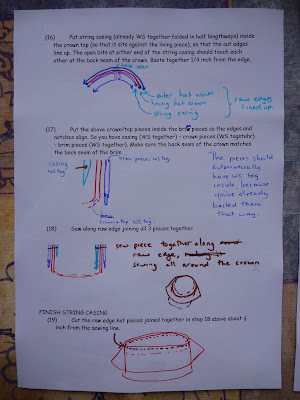 (16) Put string casing (already WS together-folded in half lengthways) inside
the crown top (so that it sits against the lining piece), so that the cut edges
line up. The open bits at either end of the string casing should touch each
other at the back seam of the crown. Baste together 1/4 inch from the edge.
back seam
outer hat crown
lining hat crown
string casing
raw edges
lined up
(17) Put the above crown/top pieces inside the brim pieces so the edges and
notches align. So you have casing (WS together) - crown pieces (WS together)
- brim pieces (WS together). Make sure the back seam of the crown matches
the back seam of the brim.
casing
WS tog
brim pieces WS tog.
crown top WS tog.
The pieces should
automatically
have WS tog
inside, because
you've already
basted them
that way.
(18) Sew along raw edge joining all 3 pieces together.
sew piece together along
raw edge,
sewing all around the crown
FINISH STRING CASING
(19) Cut the raw edge hat pieces joined together in step 18 above about
inch from the sewing line.